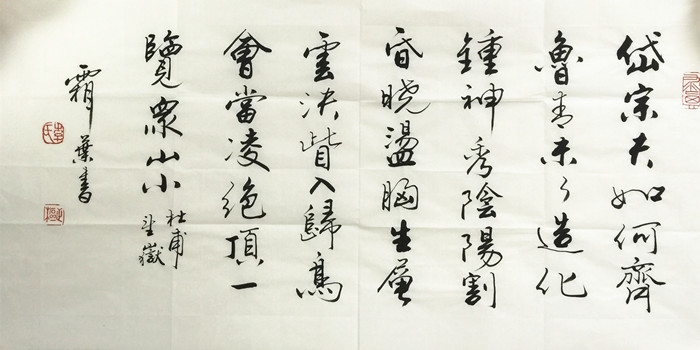 岱宗夫如何齊
魯青未了造化
鍾神秀陰陽割
昏曉盪胸生層
雲決眥入歸鳥
會當凌絕頂一
覽眾山小
杜甫
望嶽
霜葉書